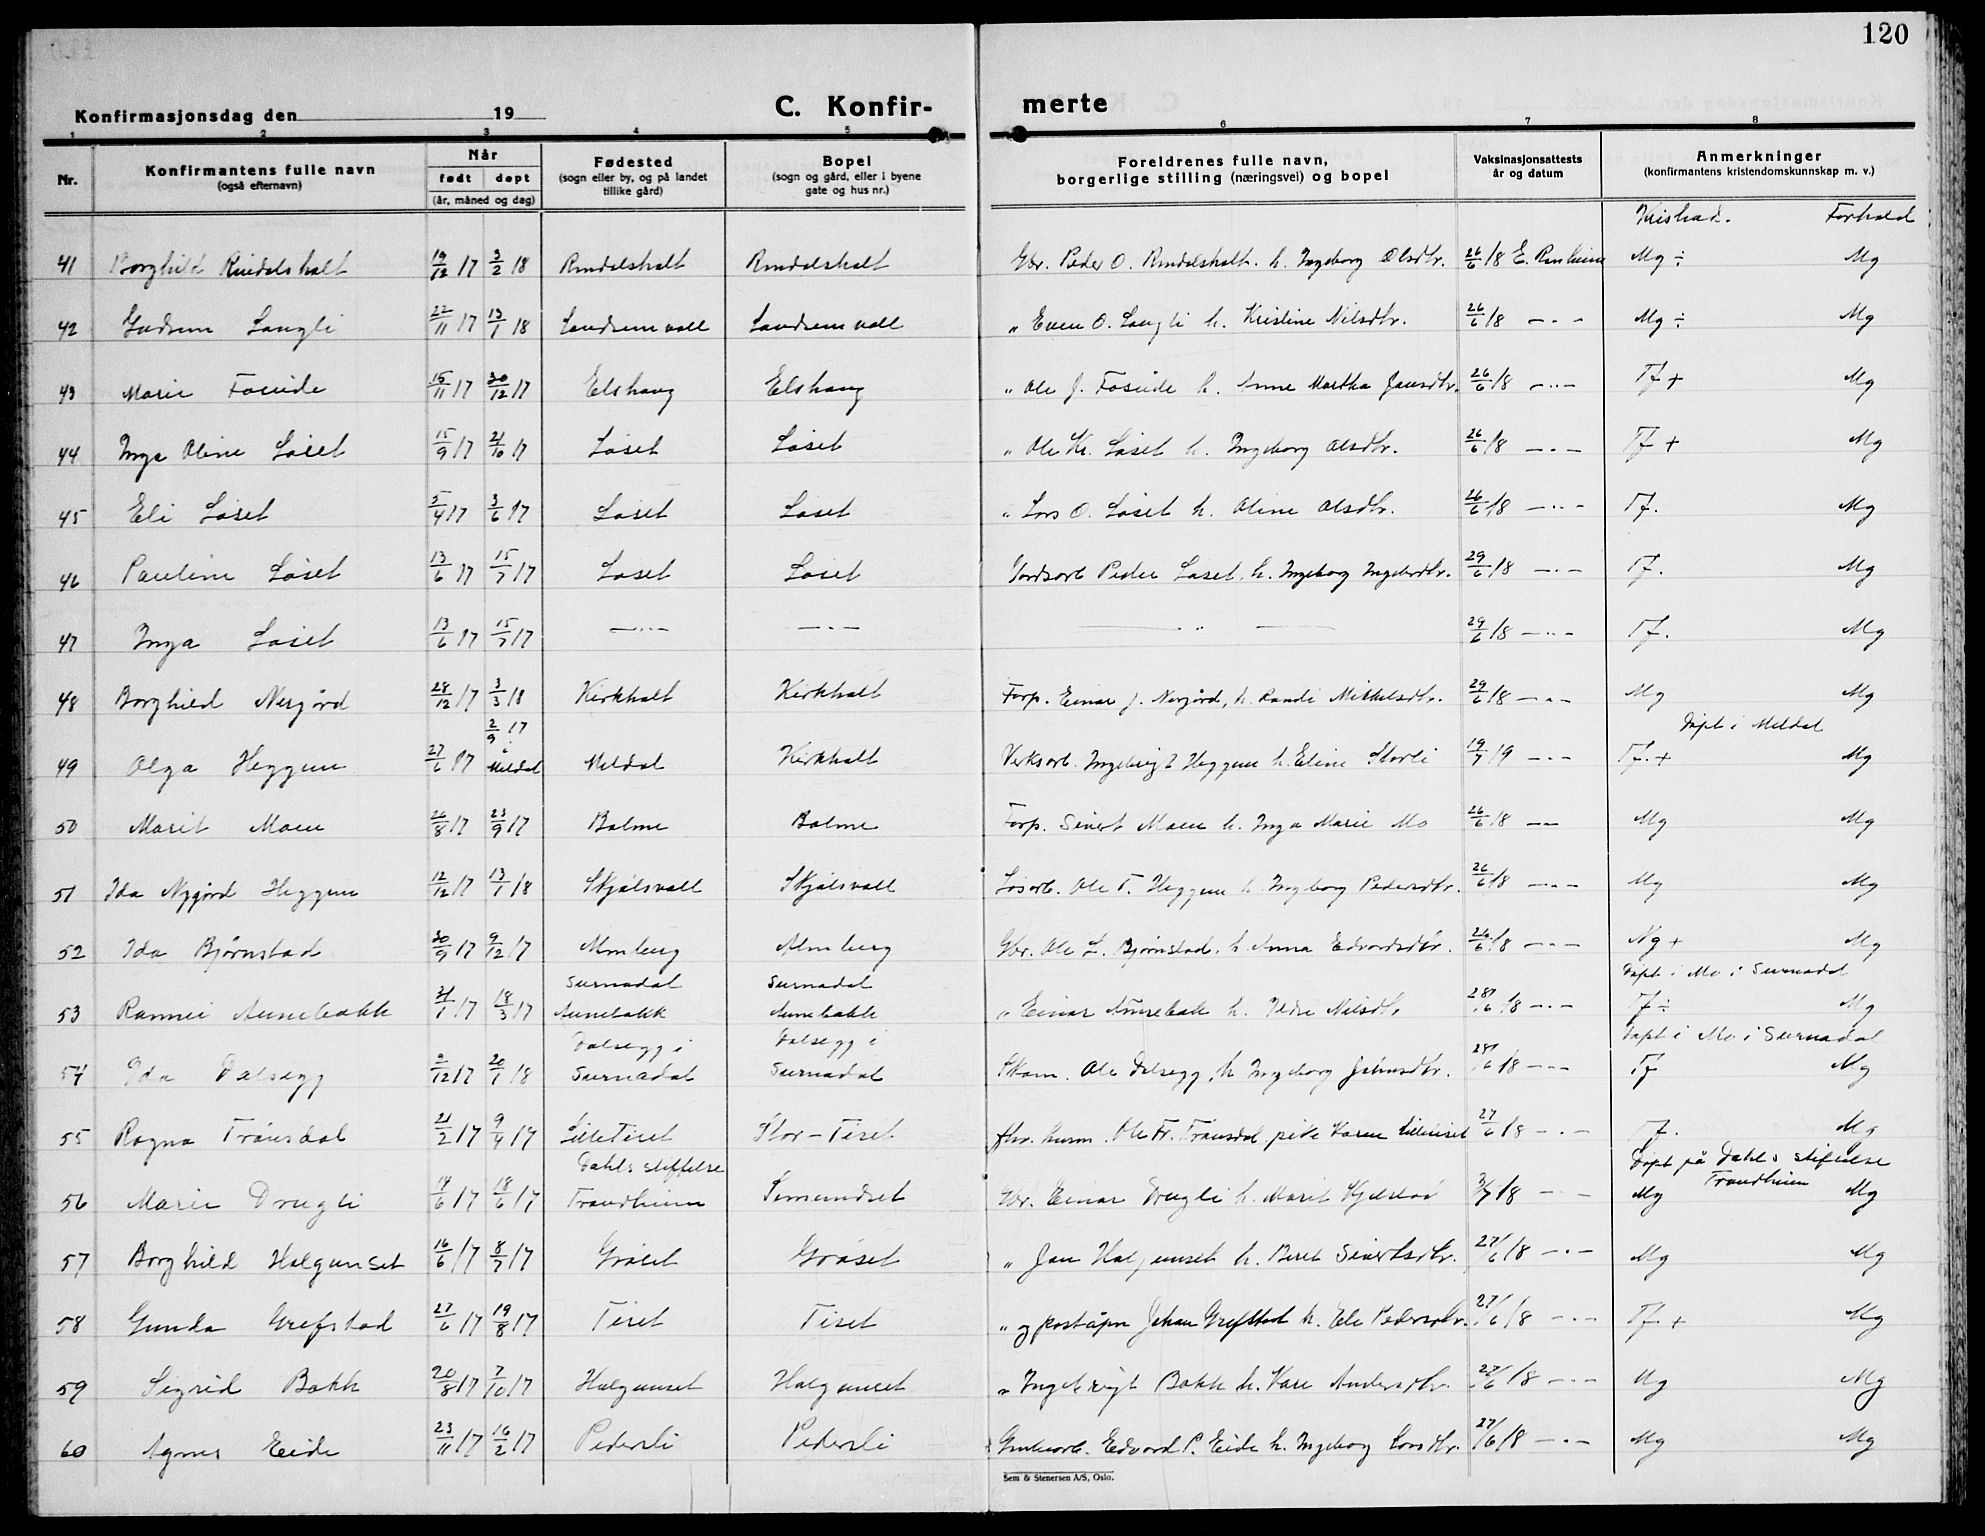 120
Konfirmasjonsdag den 19
C. Konfir-
merte
1 2 3 4 5 6 7 8
Nr.
Konfirmantens fulle navn
(også efternavn)
Når
født døpt
(år, måned og dag)
Fødested
(sogn eller by, og på landet
tillike gård)
Bopel
(sogn og gård, eller i byene
gate og hus nr.)
Foreldrenes fulle navn,
borgerlige stilling (næringsvei) og bopel
Vaksinasjonsattests
år og datum
Anmerkninger
(konfirmantens kristendomskunnskap m. v.)
Forhold
41 Borghild Rindalsholt 19/12 17 3/2 18 Rindalsholt Rindalsholt Gbr. Peder O. Rindalsholt h. Ingeborg Olsdtr. 26/6 18 Mg ÷ Mg
42 Gudrun Langli 22/11 17 13/1 18 Landsemvoll Landsemvoll „ Even O. Langli h. Kristine Nilsdtr. 26/6 18 — „ — Mg ÷ Mg
43 Marie Foseide 15/11 17 30/12 17 Elshaug Elshaug „ Ole J. Foseide h. Anne Martha Jansdtr. 26/6 18 — „ — Tf + Mg
44 Inga Oline Løset 15/9 17 21/10 17 Løset Løset „ Ole Kr. Løset h. Ingeborg Olsdtr. 26/6 18 — „ — Tf + Mg
45 Eli Løset 5/4 17 3/6 17 Løset Løset „ Lars O. Løset h. Oline Olsdtr. 26/6 18 — „ — Tf. Mg
46 Pauline Løset 13/6 17 15/7 17 Løset Løset Peder Løset h. Ingeborg 29/6 18 — „ — Tf. Mg
47 Inga Løset 13/6 17 15/7 17 — „ — — „ — — „ — 29/6 18 — „ — Tf. Mg
48 Borghild Nergård 28/12 17 3/3 18 Kirkholt Kirkholt Forp. Einar J. Nergård, h. Randi Mikkelsdtr. 29/6 18 — „ — Mg Mg
2/9 17
i
Meldal
Døpt i Meldal
49 Olga Heggem 27/6 17 Meldal Kirkholt Verksarb. Ingebrigt Heggem h. Eline Storli 19/7 19 — „ — Tf. + Mg
50 Marit Moen 26/8 17 23/9 17 Bolme Bolme Forp. Sivert Moen h. Inga Marie Mo 26/6 18 — „ — Mg Mg
51 Ida Nygård Heggem 12/12 17 13/1 18 Skjølsvoll Skjølsvoll Ole T. Heggem h. Ingeborg Pedersdtr. 26/6 18 — „ — Mg Mg
52 Ida Bjørnstad 30/9 17 9/12 17 Almberg Almberg Gbr. Ole L. Bjørnstad h. Anna Edvardsdtr. 26/6 18 — „ — Ng + Mg
Surnadal Surnadal Døpt i Mo i Surnadal
53 Rannei Aunebakk 21/1 17 18/3 17 Aunebakk Aunebakk „ Einar h. Nilsdtr. 28/6 18 — „ — Tf ÷ Mg
Dalsegg i Dalsegg i Døpt i Mo i Surnadal
54 Ida Dalsegg 2/12 17 20/1 18 Surnadal Surnadal Skom. Ole Dalsegg, h Ingeborg Johnsdtr. 28/6 18 — „ — Tf Mg
55 Ragna Trønsdal 21/2 17 9/4 17 Lilletiset Stor-Tiset Ole Fr. Trønsdal, pike Karen 27/6 18 — „ — Tf. Mg
Dahls stiftelse
Døpt på Dahls stiftelse
Trondheim
56 Marie Drugli 14/6 17 18/6 17 Trondheim Simundset Gbr. Einar Drugli h. Marit 3/7 18 — „ — Mg Mg
57 Borghild Halgunset 16/6 17 8/7 17 Grøset Grøset „ Jon Halgunset h. Beret Sivertsdtr. 27/6 18 — „ — Mg Mg
58 Gunda Grefstad 27/6 17 19/8 17 Tiset Tiset „ og poståpn Johan Grefstad h. Eli Pedersdtr. 27/6 18 — „ — Tf. + Mg
59 Sigrid Bakk 20/8 17 7/10 17 Halgunset Halgunset „ Ingebrigt Bakk h. Kari Andersdtr. 27/6 18 — „ — Mg Mg
60 Agnes Eide 23/11 17 16/2 17 Pedersli Pedersli Gruvearb. Edvard P. Eide h. Ingeborg Larsdtr. 27/6 18 — „ — Mg Mg
Sem & Stenersen A/S, Oslo.